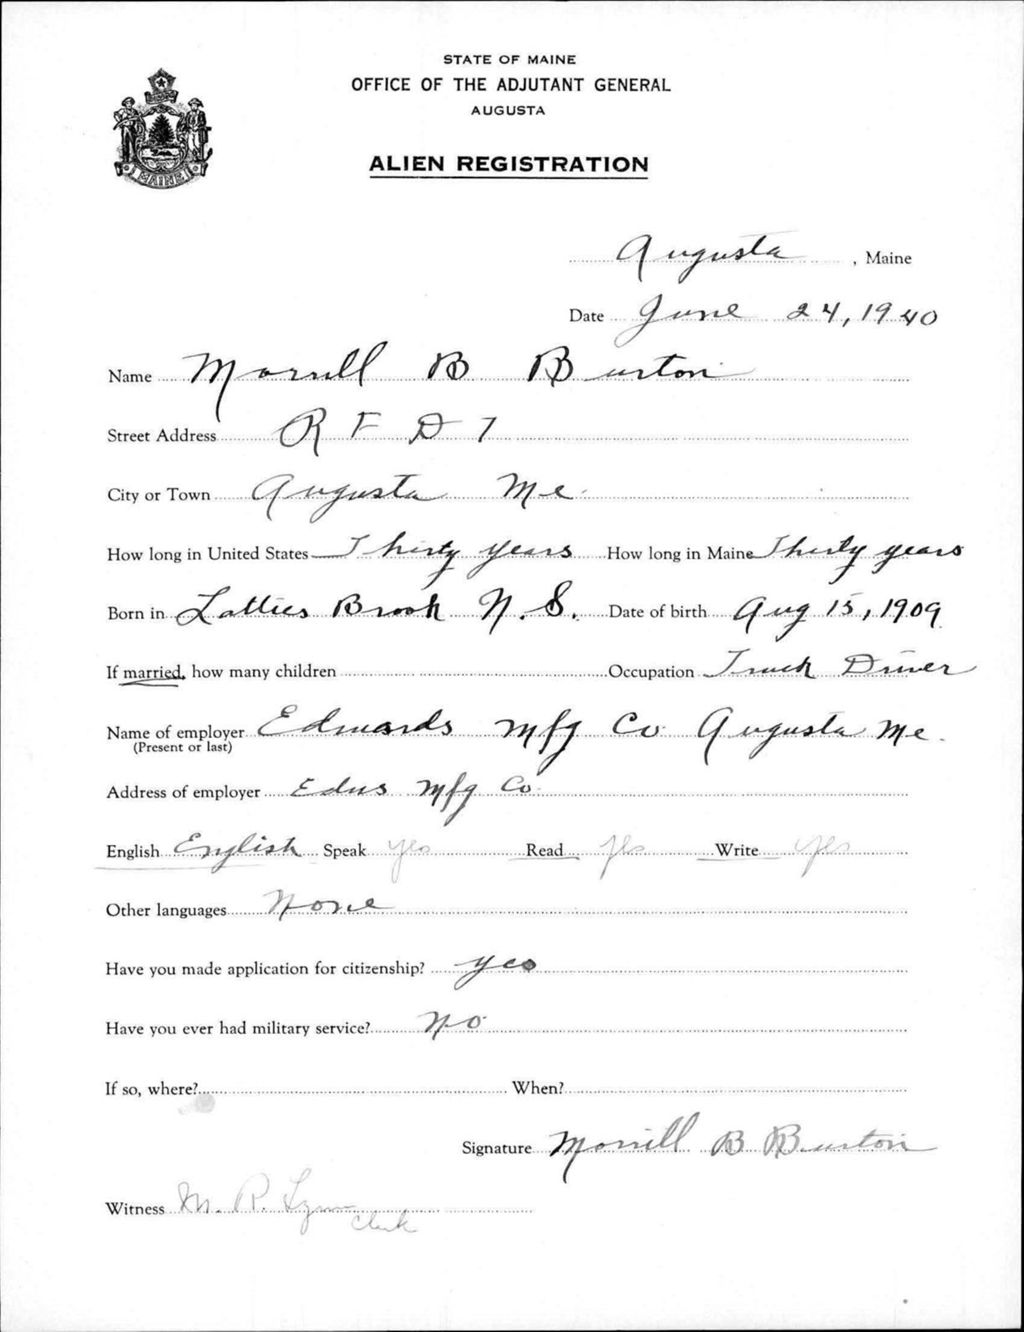 STATE OF MAINE
OFFICE OF THE ADJUTANT GENERAL
AUGUSTA
MAINE
ALIEN REGISTRATION
Augusta, Maine
Date June 24, 1940
Name Morrill B Burton
Street Address R F D 7
City or Town Augusta Me.
How long in United States Thirty years How long in Maine Thirty years
Born in Latties Brook N.S. Date of birth Aug 15, 1909
If married, how many children Occupation Truck Driver
Name of employer Edwards Mfg Co Augusta Me.
(Present or last)
Address of employer Edws Mfg Co.
English English Speak yes Read yes Write yes
Other languages None
Have you made application for citizenship? yes
Have you ever had military service? No
If so, where? When?
Signature Morrill B Burton
Witness M. R.
Clerk